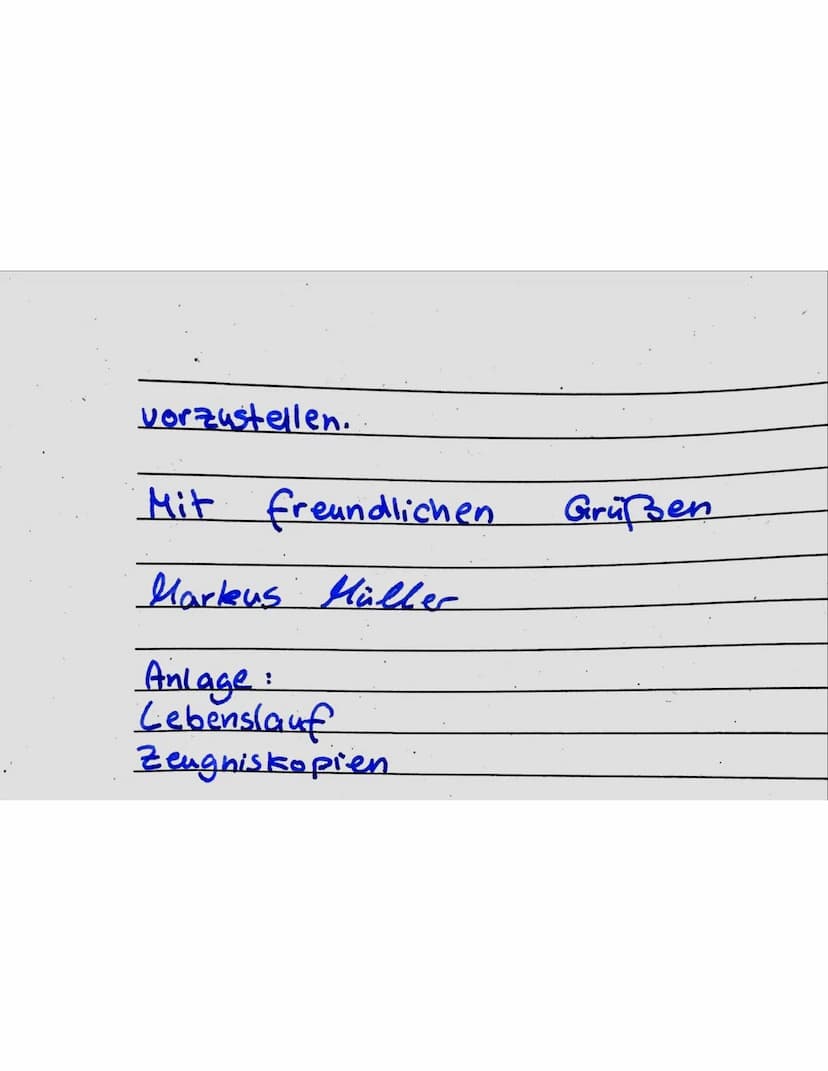 vorzustellen.
Mit freundlichen Grüßen
Markus Müller
Anlage:
Lebenslauf
Zeugniskopien